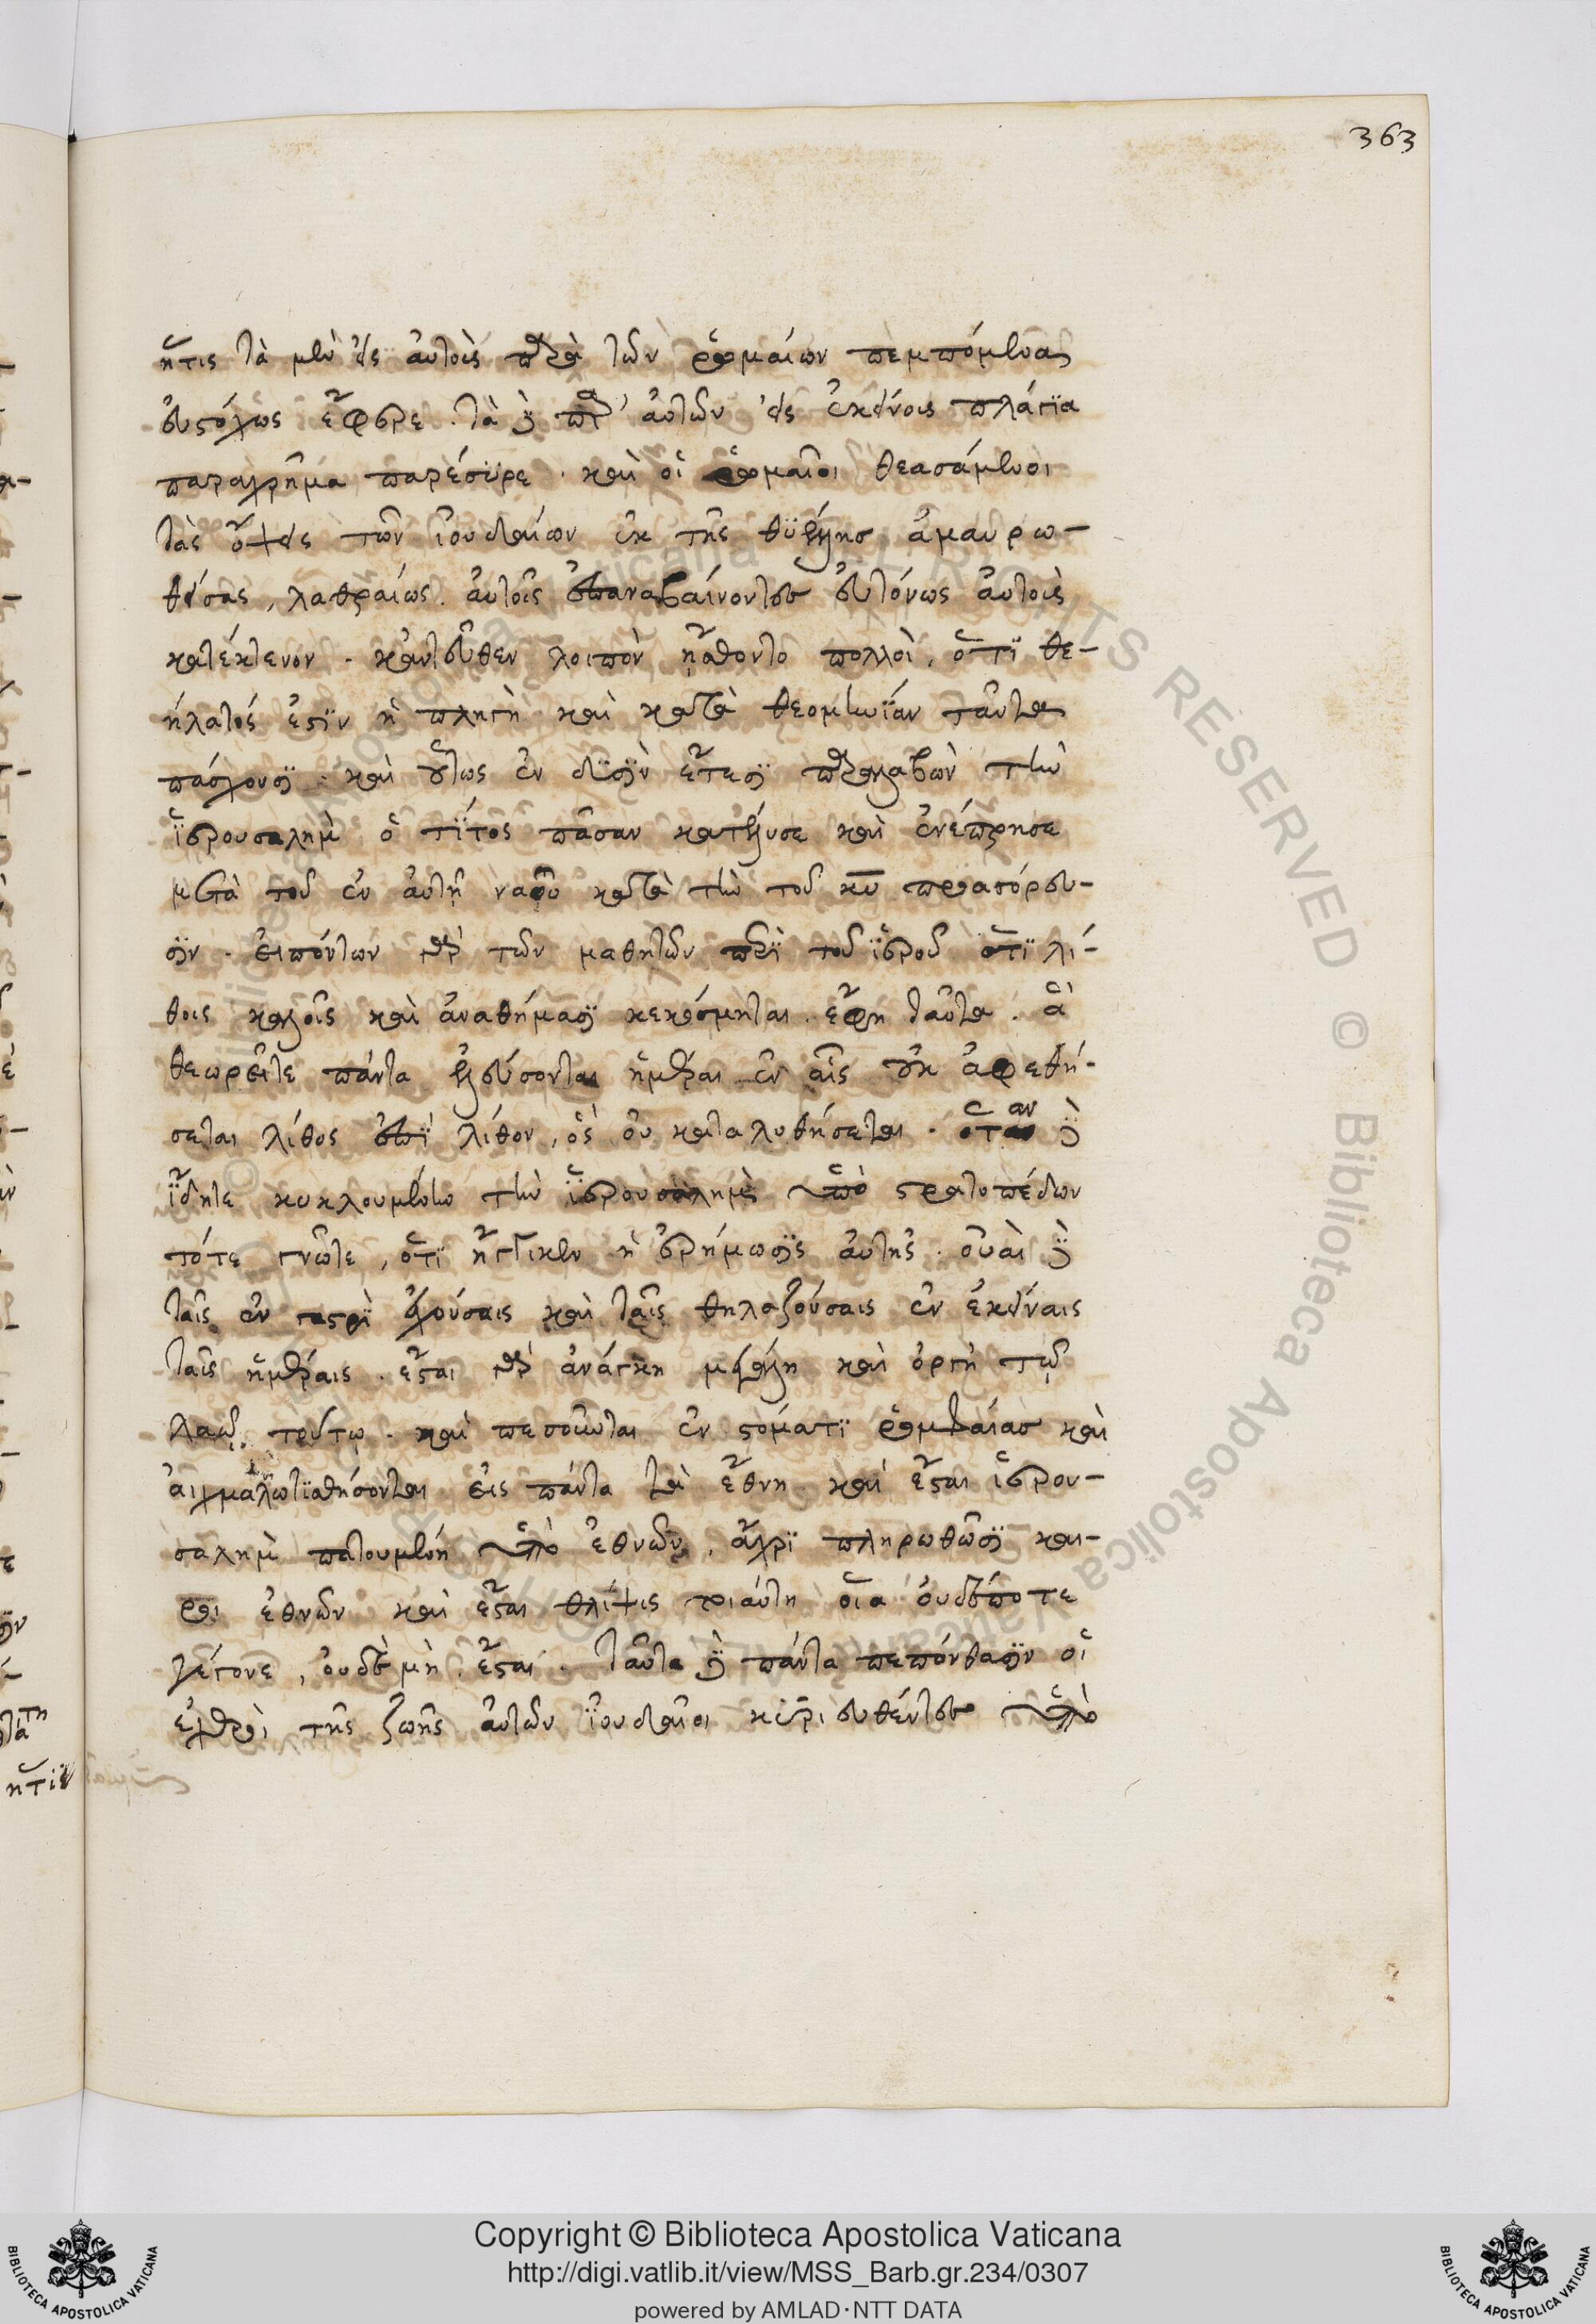 363
ἥτις τὰ μὲν εἰς αὐτοὺς παρὰ τῶν ῥωμαίων πεμπόμενα
εὐστόχως ἔφερε. τὰ δὲ παρ' αὐτῶν εἰς ἐκείνοις πλάγϊα
παραχρῆμα παρέσυρε. καὶ οἱ ῥωμαῖοι θεασάμενοι
τὰς ὄψεις τῶν ἰουδαίων ἐκ τῆς θϋέλλης ἀμαυρω-
θείσας, λαθραίως αὐτοῖς ἐπαναβαίνοντες εὐτόνως αὐτοὺς
κατέκτενον. κἀντεῦθεν λοιπὸν ᾔσθοντο πολλοὶ, ὅτϊ θε-
ήλατός ἐστϊν ἡ πληγὴ καὶ κατὰ θεομηνίαν ταῦτα
πάσχουσϊ. καὶ οὕτως ἐν δϋσὶν ἔτεσϊ παραλαβὼν τὴν
ἱερουσαλὴμ ὁ τίτος πᾶσαν κατέλυσε καὶ ἐνέπρησε
μετὰ τοῦ ἐν αὐτῇ ναοῦ κατὰ τὴν τοῦ κυ προαγόρευ-
σϊν. εἰπόντων γὰρ τῶν μαθητῶν περὶ τοῦ ἱεροῦ ὅτϊ λί-
θοις καλοῖς καὶ ἀναθήμασϊ κεκόσμηται. ἔφη ταῦτα. ἃ
θεωρεῖτε πάντα ἐλεύσονται ἡμέραι ἐν αἷς οὐκ ἀφεθή-
σεται λίθος ἐπὶ λίθον, ὃς οὐ καταλυθήσεται. ὅταν δὲ
ἴδητε κυκλουμένην τὴν ἱερουσαλὴμ ὑπὸ στρατοπέδων
τότε γνῶτε, ὅτϊ ἤγγικεν ἡ ἐρήμωσϊς αὐτῆς. οὐαὶ δὲ
ταῖς ἐν γαστρὶ ἐχούσαις καὶ ταῖς θηλαζούσαις ἐν ἐκείναις
ταῖς ἡμέραις. ἔσται γὰρ ἀνάγκη μεγάλη καὶ ὀργὴ τῷ
λαῷ τούτῳ. καὶ πεσοῦνται ἐν στόματϊ ῥομφαίας καὶ
αἰχμαλωτισθήσονται εἰς πάντα τὰ ἔθνη. καὶ ἔσται ἱερου-
σαλὴμ πατουμένη ὑπὸ ἐθνῶν, ἄχρϊ πληρωθῶσϊ και-
ροὶ ἐθνῶν καὶ ἔσται θλίψις τοιαύτη οἵα οὐδέποτε
γέγονε, οὐδὲ μὴ ἔσται. ταῦτα δὲ πάντα πεπόνθασϊν οἱ
ἐχθροὶ τῆς ζωῆς αὐτῶν ἰουδαῖοι κυριευθέντες ὑπὸ
Copyright © Biblioteca Apostolica Vaticana
http://digi.vatlib.it/view/MSS_Barb.gr.234/0307
powered by AMLAD·NTT DATA
BIBLIOTECA APOSTOLICA VATICANA
BIBLIOTECA APOSTOLICA VATICANA